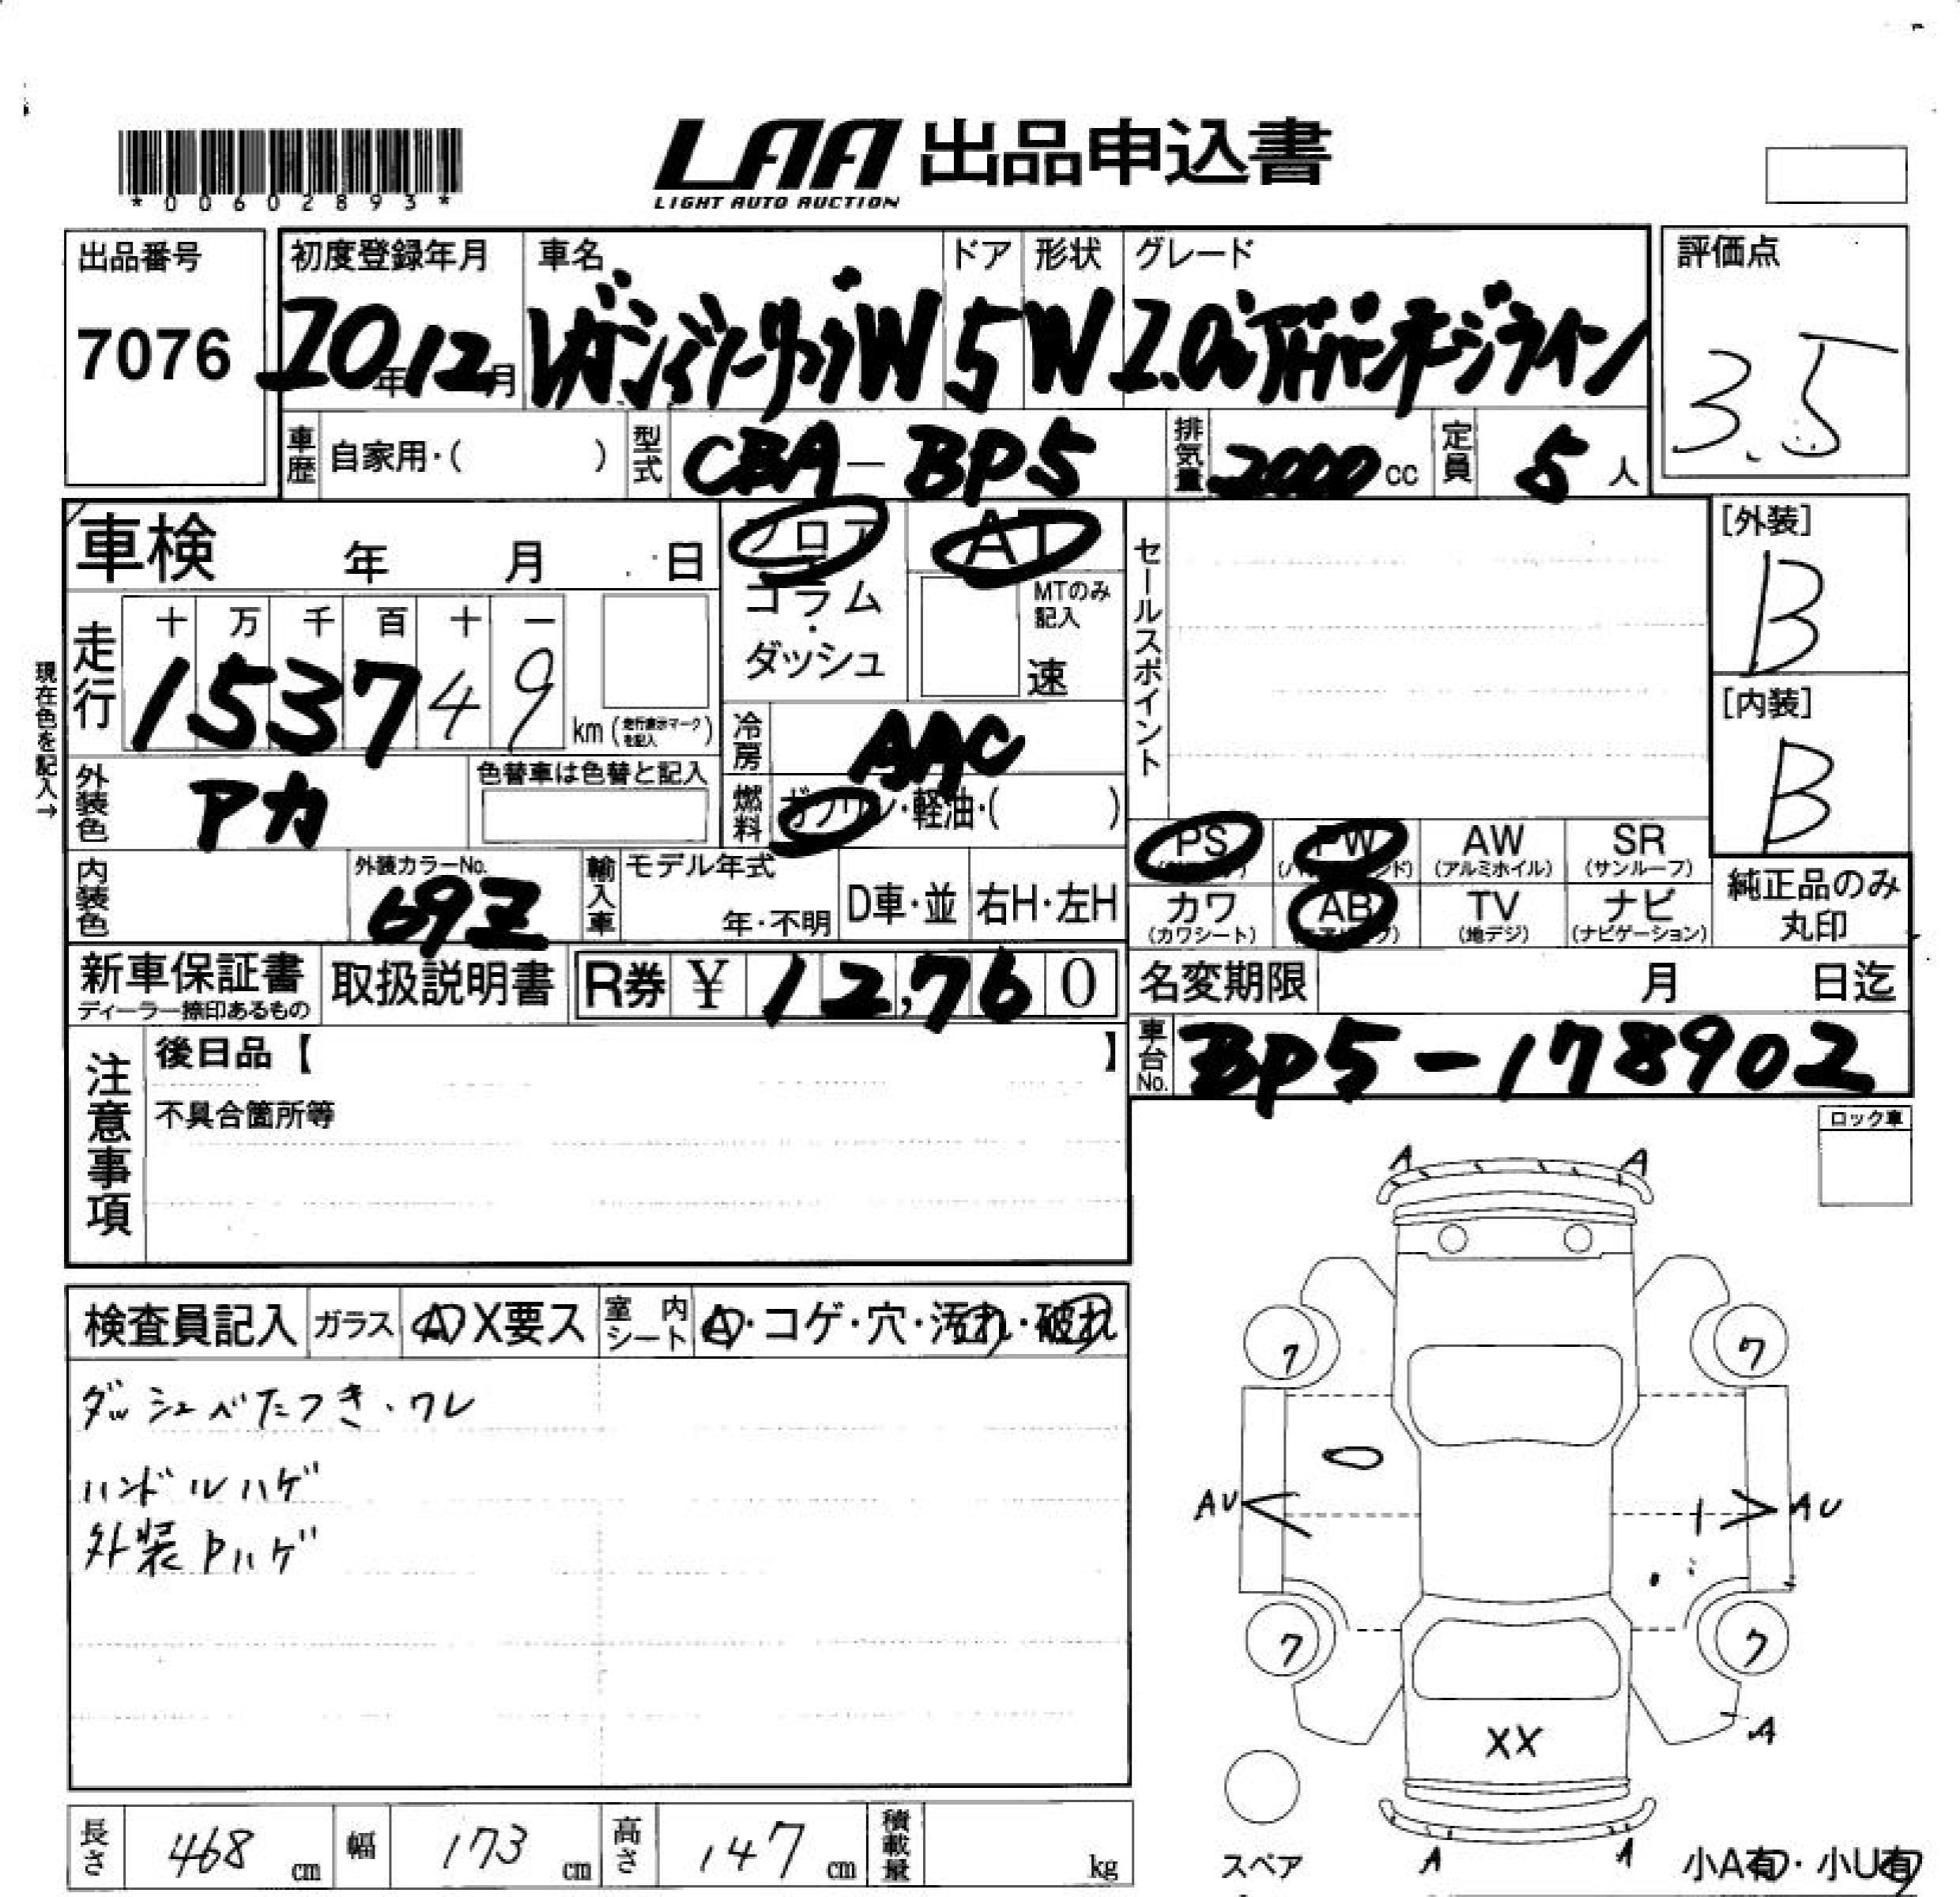 *00602893*
LAA 出品申込書
LIGHT AUTO AUCTION
出品番号
7076
初度登録年月 車名 ドア 形状 グレード
20年12月 レガシィツーリングW 5 W 2.0i
評価点
3.5
車歴 自家用・( ) 型式 CBA-BP5 排気量 2000cc 定員 5人
車検 年 月 日
フロア AT
コラム・ダッシュ
MTのみ記入
速
セールスポイント
[外装]
B
[内装]
B
現在色を記入→
走行 十 万 千 百 十 一
153749 km (走行表示マークを記入)
冷房 AAC
外装色 アカ 色替車は色替と記入
燃料 ガソリン・軽油・( )
PS PW AW (アルミホイル) SR (サンルーフ)
カワ (カワシート) AB TV (地デジ) ナビ (ナビゲーション)
純正品のみ
丸印
内装色 外装カラーNo. 69Z
輸入車 モデル年式 年・不明 D車・並 右H・左H
新車保証書 ディーラー捺印あるもの 取扱説明書 R券 ¥ 12,760
名変期限 月 日迄
車台No. BP5-178902
注意事項
後日品【 】
不具合箇所等
ロック車
検査員記入 ガラス A X要ス 室内シート A・コゲ・穴・汚れ・破れ
ダッシュベたつき・ワレ
ハンドルハゲ
外装Pハゲ
A A
ワ ワ
AU AU
ワ ワ
A
XX
スペア
A A
小A有・小U有
長さ 468 cm 幅 173 cm 高さ 147 cm 積載量 kg